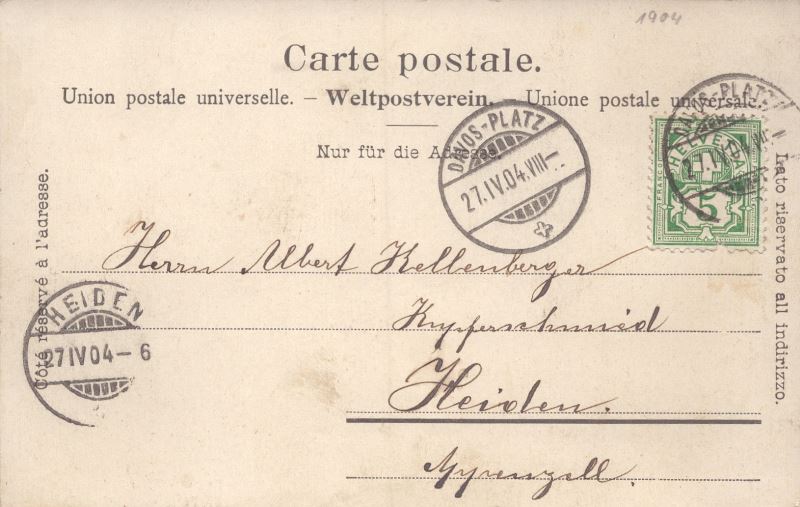 1904
Carte postale.
Union postale universelle. – Weltpostverein. – Unione postale universale.
Nur für die Adresse.
Côté réservé à l'adresse.
Lato riservato all indirizzo.
DAVOS-PLATZ
27.IV.04.VIII–
DAVOS-PLATZ
27.IV.04.VIII
FRANCO
HELVETIA
5
Herrn Albert Kellenberger
Kupferschmied
Heiden.
Appenzell.
HEIDEN
27IV04–6